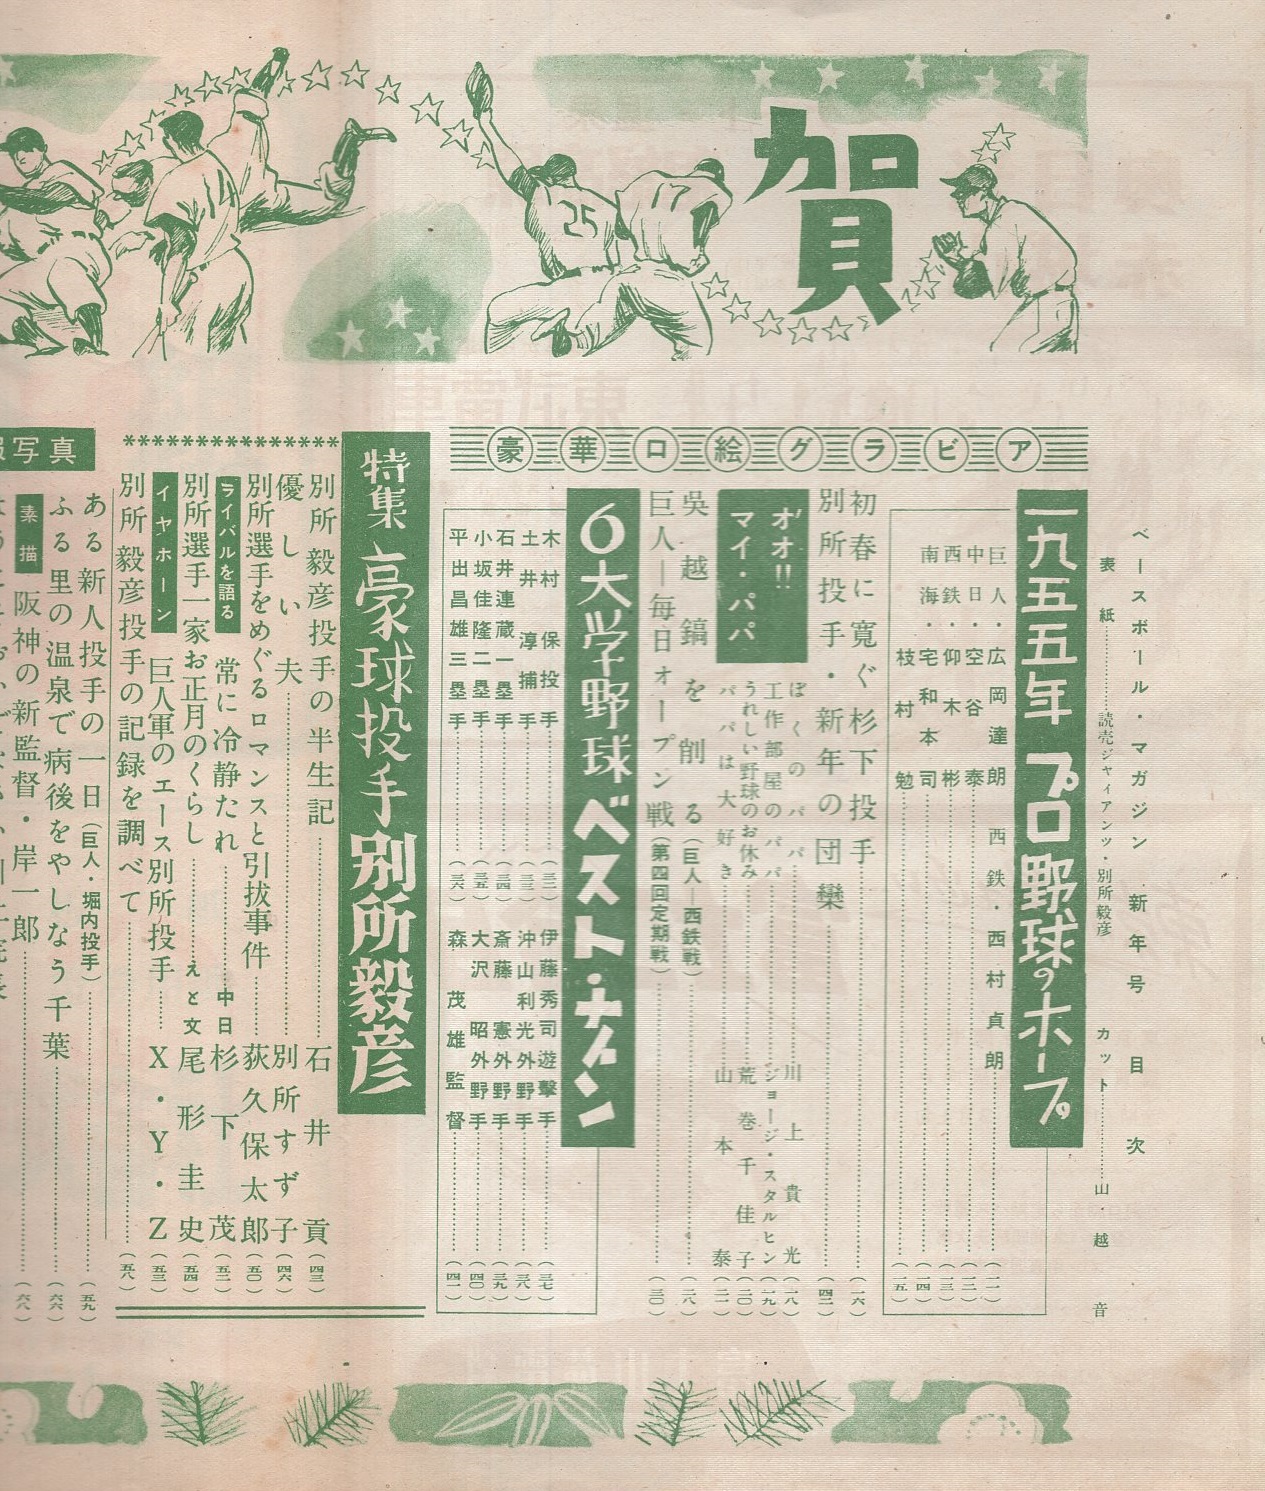 賀
ベースボール・マガジン 新年号 目次
表紙………読売ジャイアンツ・別所毅彦 カット………山越音
豪華口絵グラビア
一九五五年 プロ野球のホープ
巨人・広岡達朗 西鉄・西村貞朗………(一一)
中日・空谷泰………(一二)
西鉄・仰木彬………(一三)
南海・宅和本司………(一四)
枝村勉………(一五)
初春に寛ぐ杉下投手………(一六)
別所投手・新年の団欒………(四二)
オオ!!マイ・パパ
ぼくのパパ………川上貴光(一八)
工作部屋のパパ………ジョージ・スタルヒン(一九)
うれしい野球のお休み………荒巻千佳子(二〇)
パパは大好き………山本泰(二一)
呉越鎬を削る(巨人―西鉄戦)………(二八)
巨人―毎日オープン戦(第四回定期戦)………(三〇)
6大学野球ベスト・ナイン
木村保投手………(三二) 伊藤秀司遊撃手………(三七)
土井淳捕手………(三三) 沖山利光外野手………(三八)
石井連蔵一塁手………(三四) 斎藤憲外野手………(三九)
小坂佳隆二塁手………(三五) 大沢昭外野手………(四〇)
平出昌雄三塁手………(三六) 森茂雄監督………(四一)
特集 豪球投手 別所毅彦
別所毅彦投手の半生記………石井貢(四三)
優しい夫………別所すず子(四六)
別所選手をめぐるロマンスと引抜事件………荻久保太郎(五〇)
ライバルを語る 常に冷静たれ………中日 杉下茂(五二)
別所選手一家お正月のくらし………えと文 尾形圭史(五四)
イヤホーン 巨人軍のエース別所投手………X・Y・Z(五三)
別所毅彦投手の記録を調べて………(五八)
写真
ある新人投手の一日(巨人・堀内投手)………(五九)
ふる里の温泉で病後をやしなう千葉………(六六)
素描 阪神の新監督・岸一郎………(六八)